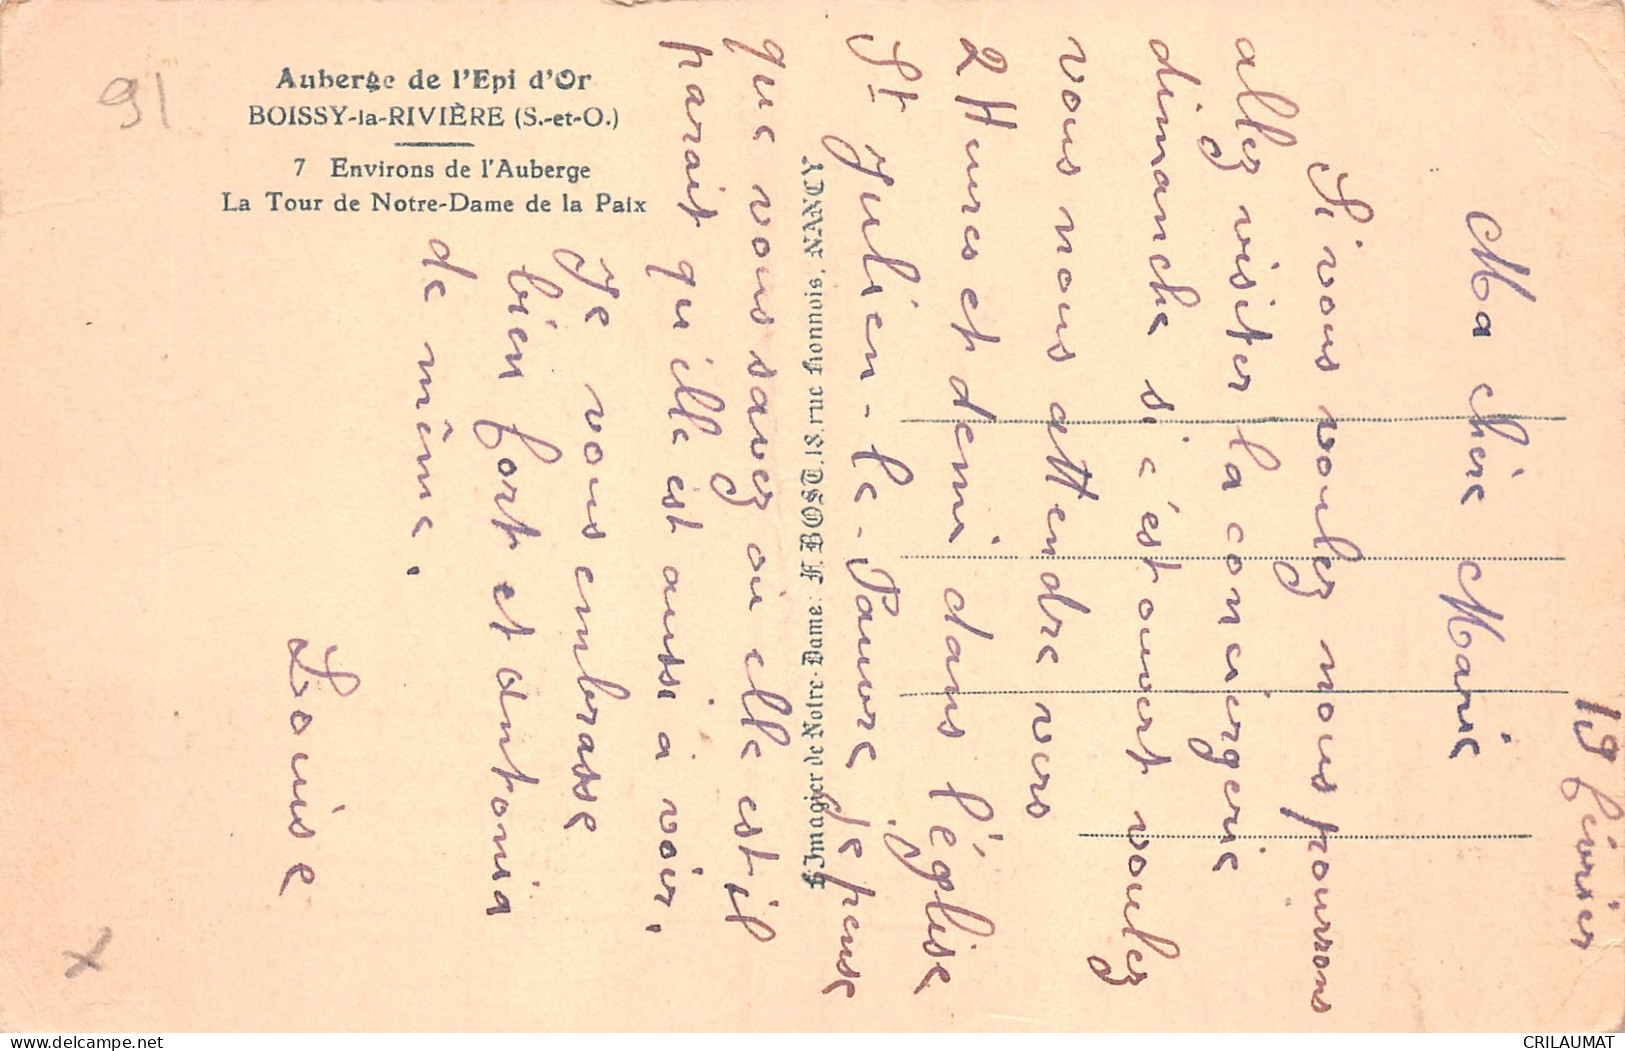 91
Auberge de l'Epi d'Or
BOISSY-la-RIVIÈRE (S.-et-O.)
7 Environs de l'Auberge
La Tour de Notre-Dame de la Paix
L'Imagier de Notre-Dame: F. BOST, 18, rue Lionnois, NANCY
19 février
Ma chère Marie
Si vous voulez nous pourrons
allez visiter la conciergerie
dimanche si c'est ouvert voulez
vous nous attendre vers
2 Heures et demi dans l'église
St Julien-le-Pauvre je pense
que vous savez où elle est il
parait qu'elle est aussi à voir.
Je vous embrasse
bien fort et Antonia
de même.
Louise
x
www.delcampe.net
CRILAUMAT